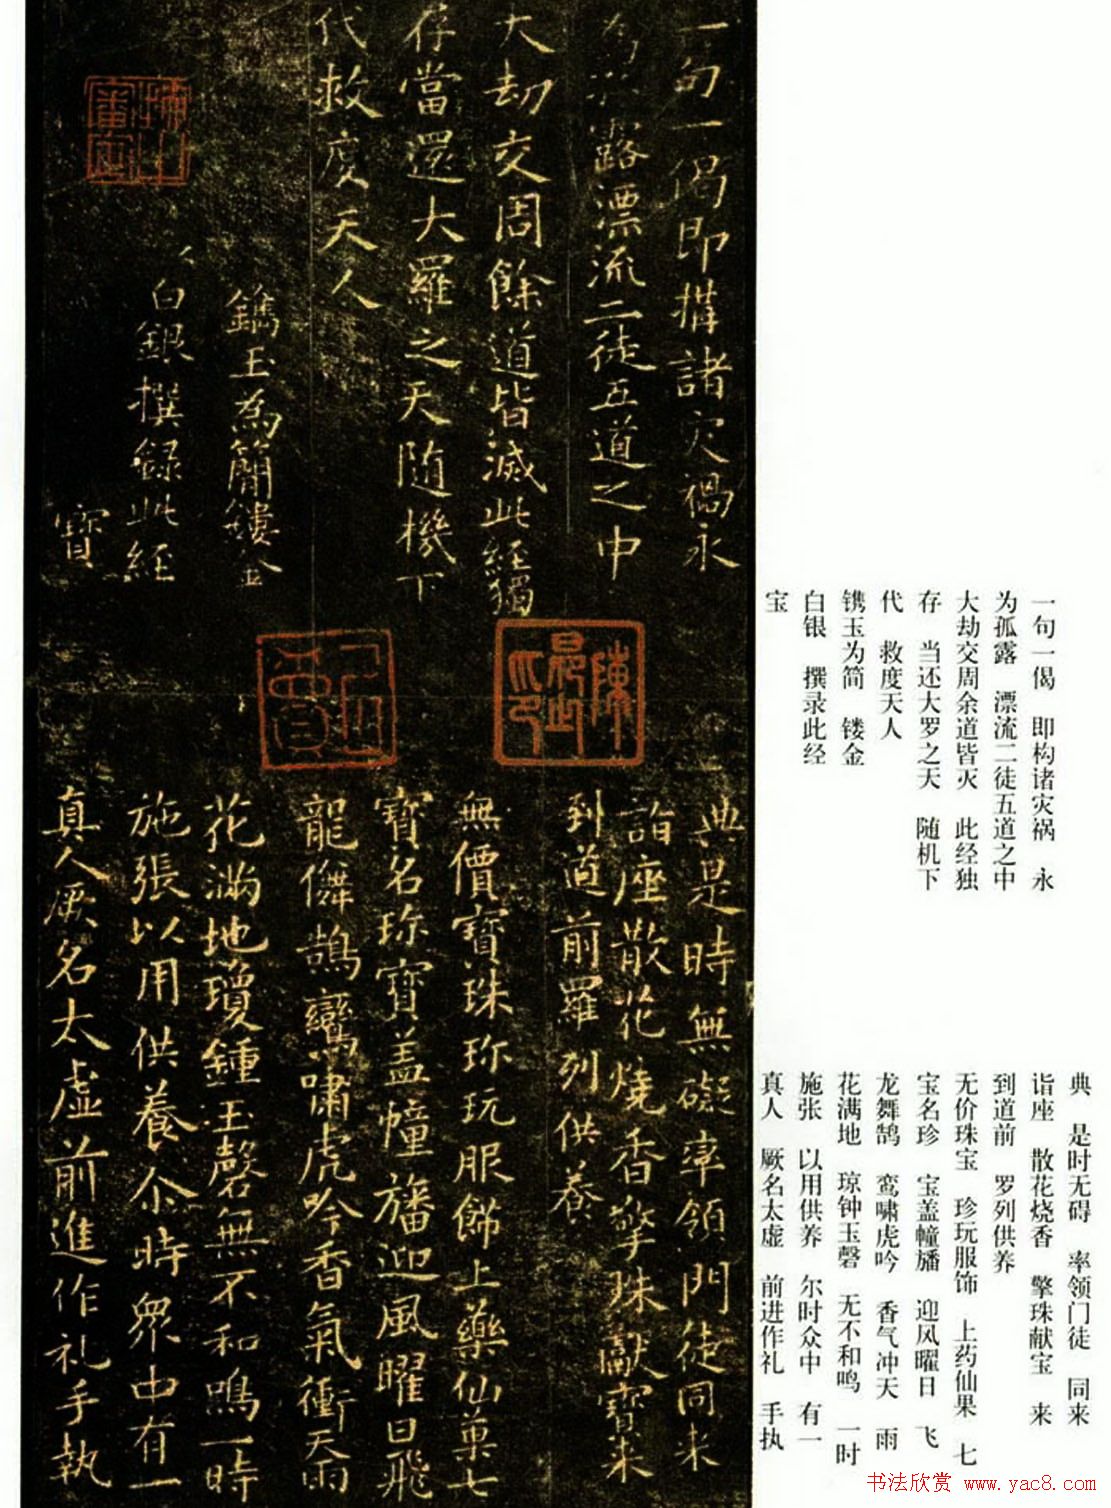 一句一偈即構諸灾禍永
為孤露漂流二徒五道之中
大劫交周餘道皆滅此経獨
存當還大羅之天随機下
代救度天人
鐫玉為簡鏤金
白銀撰録此経
寶
典是時無礙率領門徒同来
詣座散花燒香擎珠獻寶来
到道前羅列供養
無價寶珠珎玩服飾上藥仙菓七
寶名珎寶盖幢旛迎風曜日飛
龍儛鵠鸞嘯虎吟香氣衝天雨
花滿地瓊鍾玉磬無不和鳴一時
施張以用供養尒時眾中有一
真人厥名太虚前進作礼手執
一句一偈 即构诸灾祸 永
为孤露 漂流二徒五道之中
大劫交周余道皆灭 此经独
存 当还大罗之天 随机下
代 救度天人
镌玉为简 镂金
白银 撰录此经
宝
典 是时无碍 率领门徒 同来
诣座 散花烧香 擎珠献宝 来
到道前 罗列供养
无价珠宝 珍玩服饰 上药仙果 七
宝名珍 宝盖幢旛 迎风曜日 飞
龙舞鹄 鸾啸虎吟 香气冲天 雨
花满地 琼钟玉磬 无不和鸣 一时
施张 以用供养 尔时众中 有一
真人 厥名太虚 前进作礼 手执
书法欣赏 www.yac8.com